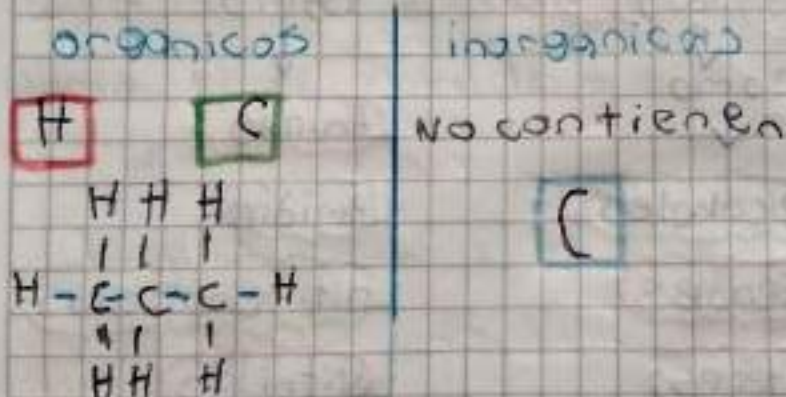 organicos
H C
H H H
| | |
H - C - C - C - H
| | |
H H H
inorganicos
No contienen
C